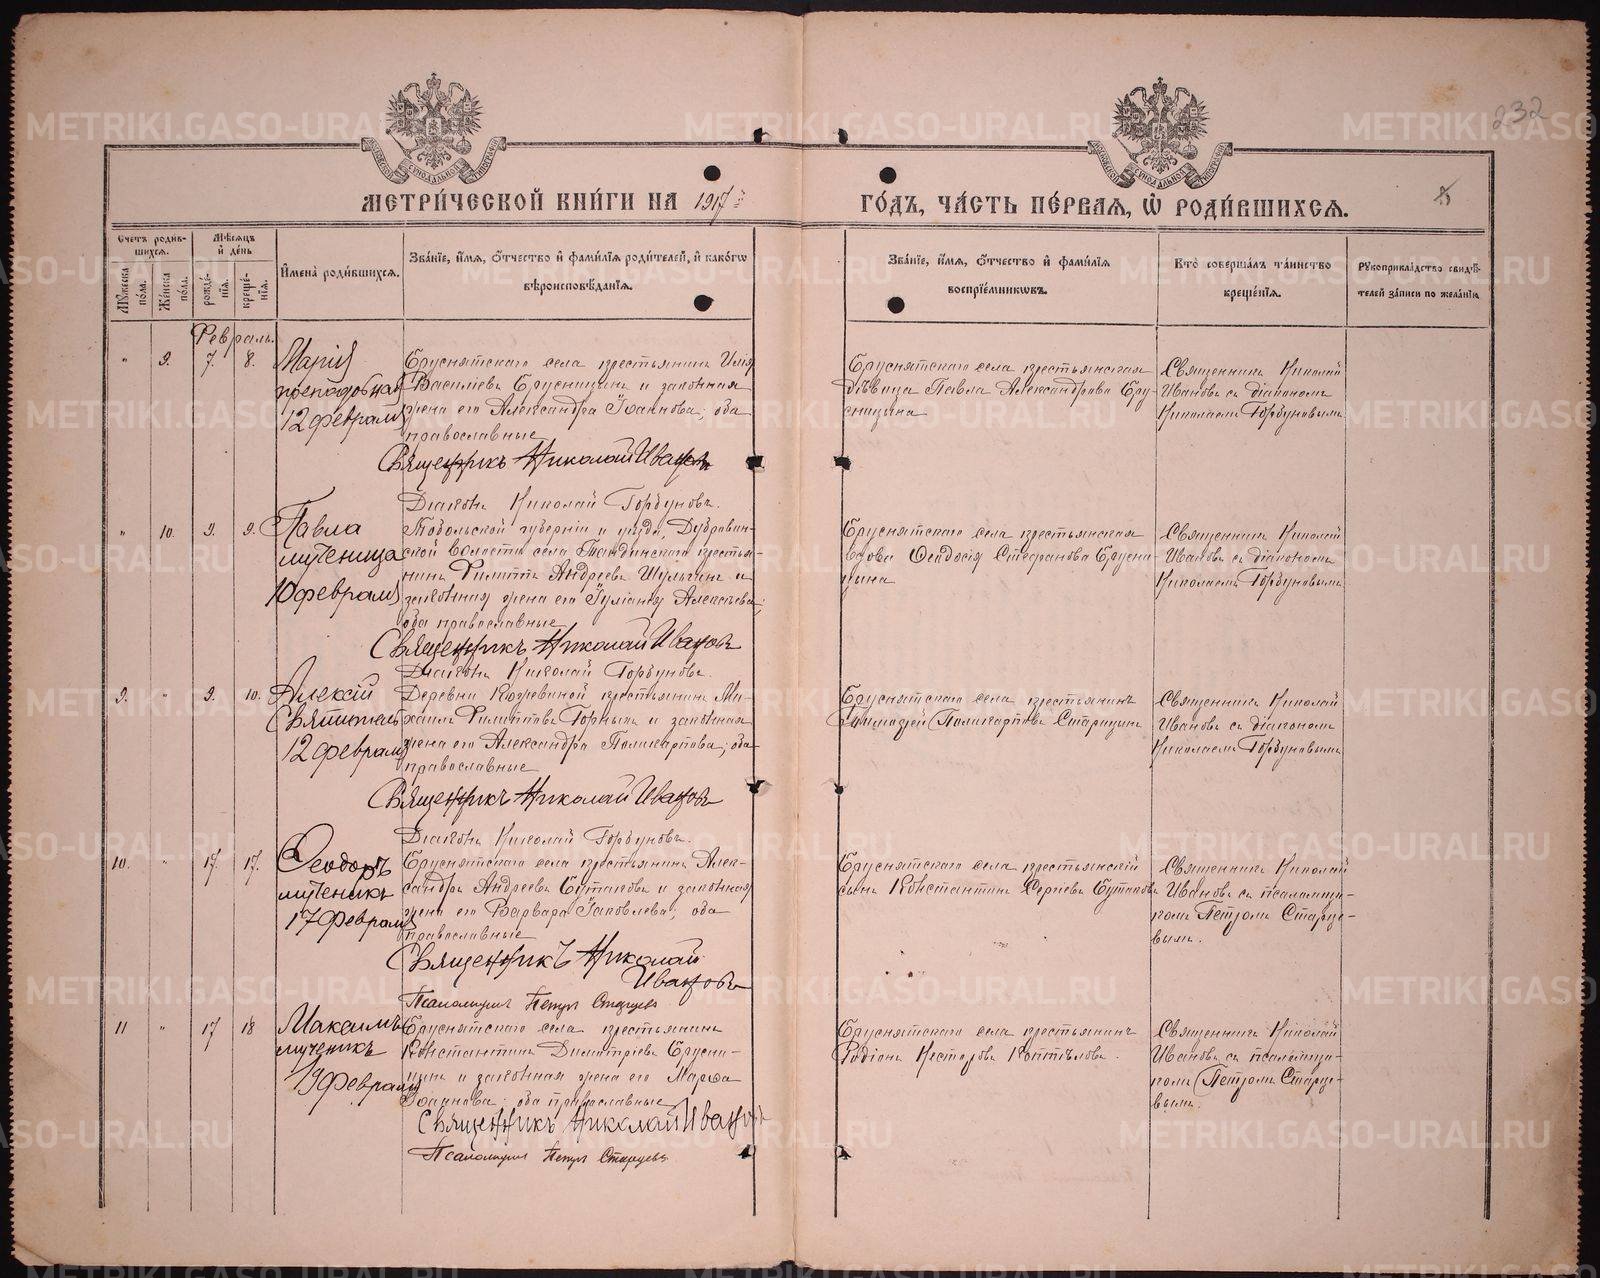 232
МЕТРИ́ЧЕСКОЙ КНИ́ГИ НА 1917й ГО́ДЪ, ЧА́СТЬ ПЕ́РВАЯ, Ѡ РОДИ́ВШИХСЯ.
Счетъ родив-
шихся.
Мѣсяцъ
и де́нь
Мужеска по́ла.
Же́нска по́ла.
рожде́нїя.
креще́нїя.
Имена̀ роди́вшихся.
Зва́нїе, и́мя, ѻ́тчество и фами́лїя роди́телей, и како́гѡ
вѣроисповѣ́данїя.
Зва́нїе, и́мя, ѻ́тчество и фами́лїя
воспрїе́мникѡвъ.
Кто̀ соверша́лъ та́инство
креще́нїя.
Рукоприкла́дство свидѣ́-
телей за́писи по жела́нїю
Февраль.
" 9. 7. 8.
Марія
преподобная
12 февраля
Бруснятскаго села крестьянинъ
Василіевъ Брусницынъ и законная
жена его Александра Іоаннова; оба
православные
Священникъ Николай Ивановъ
Діаконъ Николай Горбуновъ.
Бруснятскаго села крестьянская
дѣвица Павла Александрова Бру-
сницына
Священникъ Николай
Ивановъ съ діакономъ
Николаемъ Горбуновымъ
" 10. 9. 9.
Павла
мученица
10 февраля
Тобольской губерніи и уѣзда, Дубровин-
ской волости села крестья-
нинъ Филиппъ Андреевъ Шульгинъ и
законная жена его Іуліанія Алексѣева;
оба православные
Священникъ Николай Ивановъ
Діаконъ Николай Горбуновъ.
Бруснятскаго села крестьянская
вдова Ѳеодосія Стефанова Брусни-
цына
Священникъ Николай
Ивановъ съ діакономъ
Николаемъ Горбуновымъ
9. " 9. 10.
Алексій
Святитель
12 февраля
Деревни Кожевиной крестьянинъ Ми-
хаилъ Филипповъ Горныхъ и законная
жена его Александра Поликарпова; оба
православные
Священникъ Николай Ивановъ
Діаконъ Николай Горбуновъ.
Бруснятскаго села крестьянинъ
Поликарповъ Старицынъ
Священникъ Николай
Ивановъ съ діакономъ
Николаемъ Горбуновымъ
10. " 17 17.
Ѳеодоръ
мученикъ
17 февраля
Бруснятскаго села крестьянинъ Алек-
сандръ Андреевъ Бутаковъ и законная
жена его Варвара Іаковлева; оба
православные
Священникъ Николай
Ивановъ
Псаломщикъ Петръ Старцевъ
Бруснятскаго села крестьянскій
сынъ Константинъ Сергіевъ Бутаковъ
Священникъ Николай
Ивановъ съ псаломщи-
комъ Петромъ Старце-
вымъ.
11 " 17 18
Максимъ
мученикъ
19 февраля
Бруснятскаго села крестьянинъ
Константинъ Димитріевъ Брусни-
цынъ и законная жена его Марѳа
Іоаннова; оба православные
Священникъ Николай Ивановъ
Псаломщикъ Петръ Старцевъ
Бруснятскаго села крестьянинъ
Родіонъ Несторовъ Коптѣловъ.
Священникъ Николай
Ивановъ съ псаломщи-
комъ Петромъ Старце-
вымъ.
METRIKI.GASO-URAL.RU